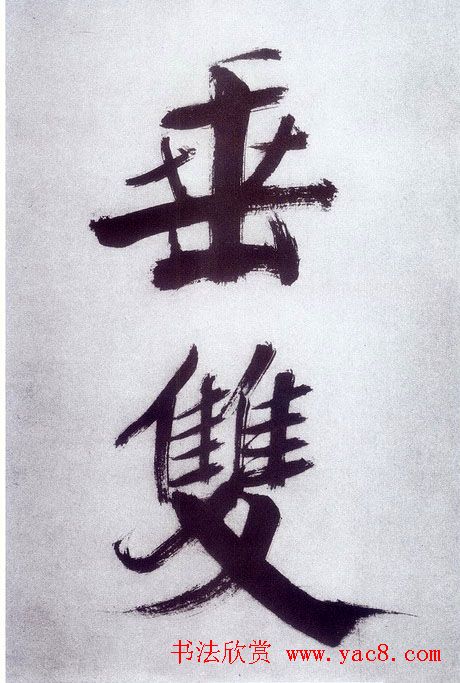 垂
雙
书法欣赏 www.yac8.com